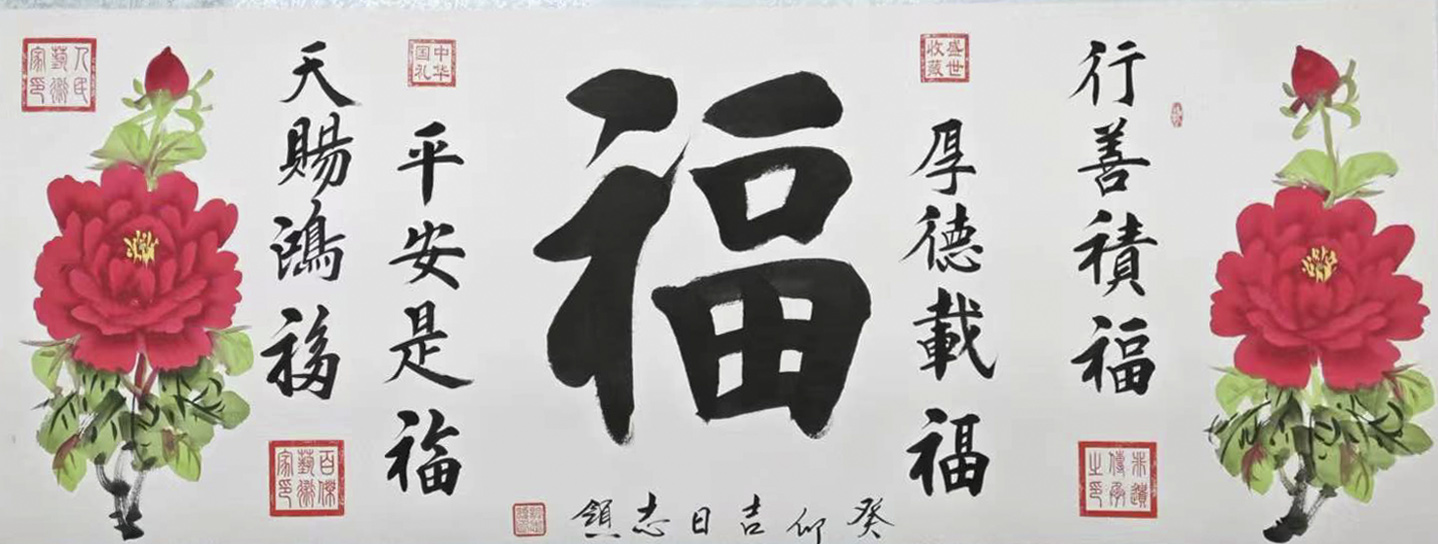 行善積福
非遺傳承之印
盛世收藏
厚德載福
福
中华国礼
平安是福
天賜鴻福
百傑藝術家印
人民藝術家印
癸卯吉日志